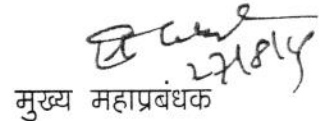 27/8/15
मुख्य महाप्रबंधक